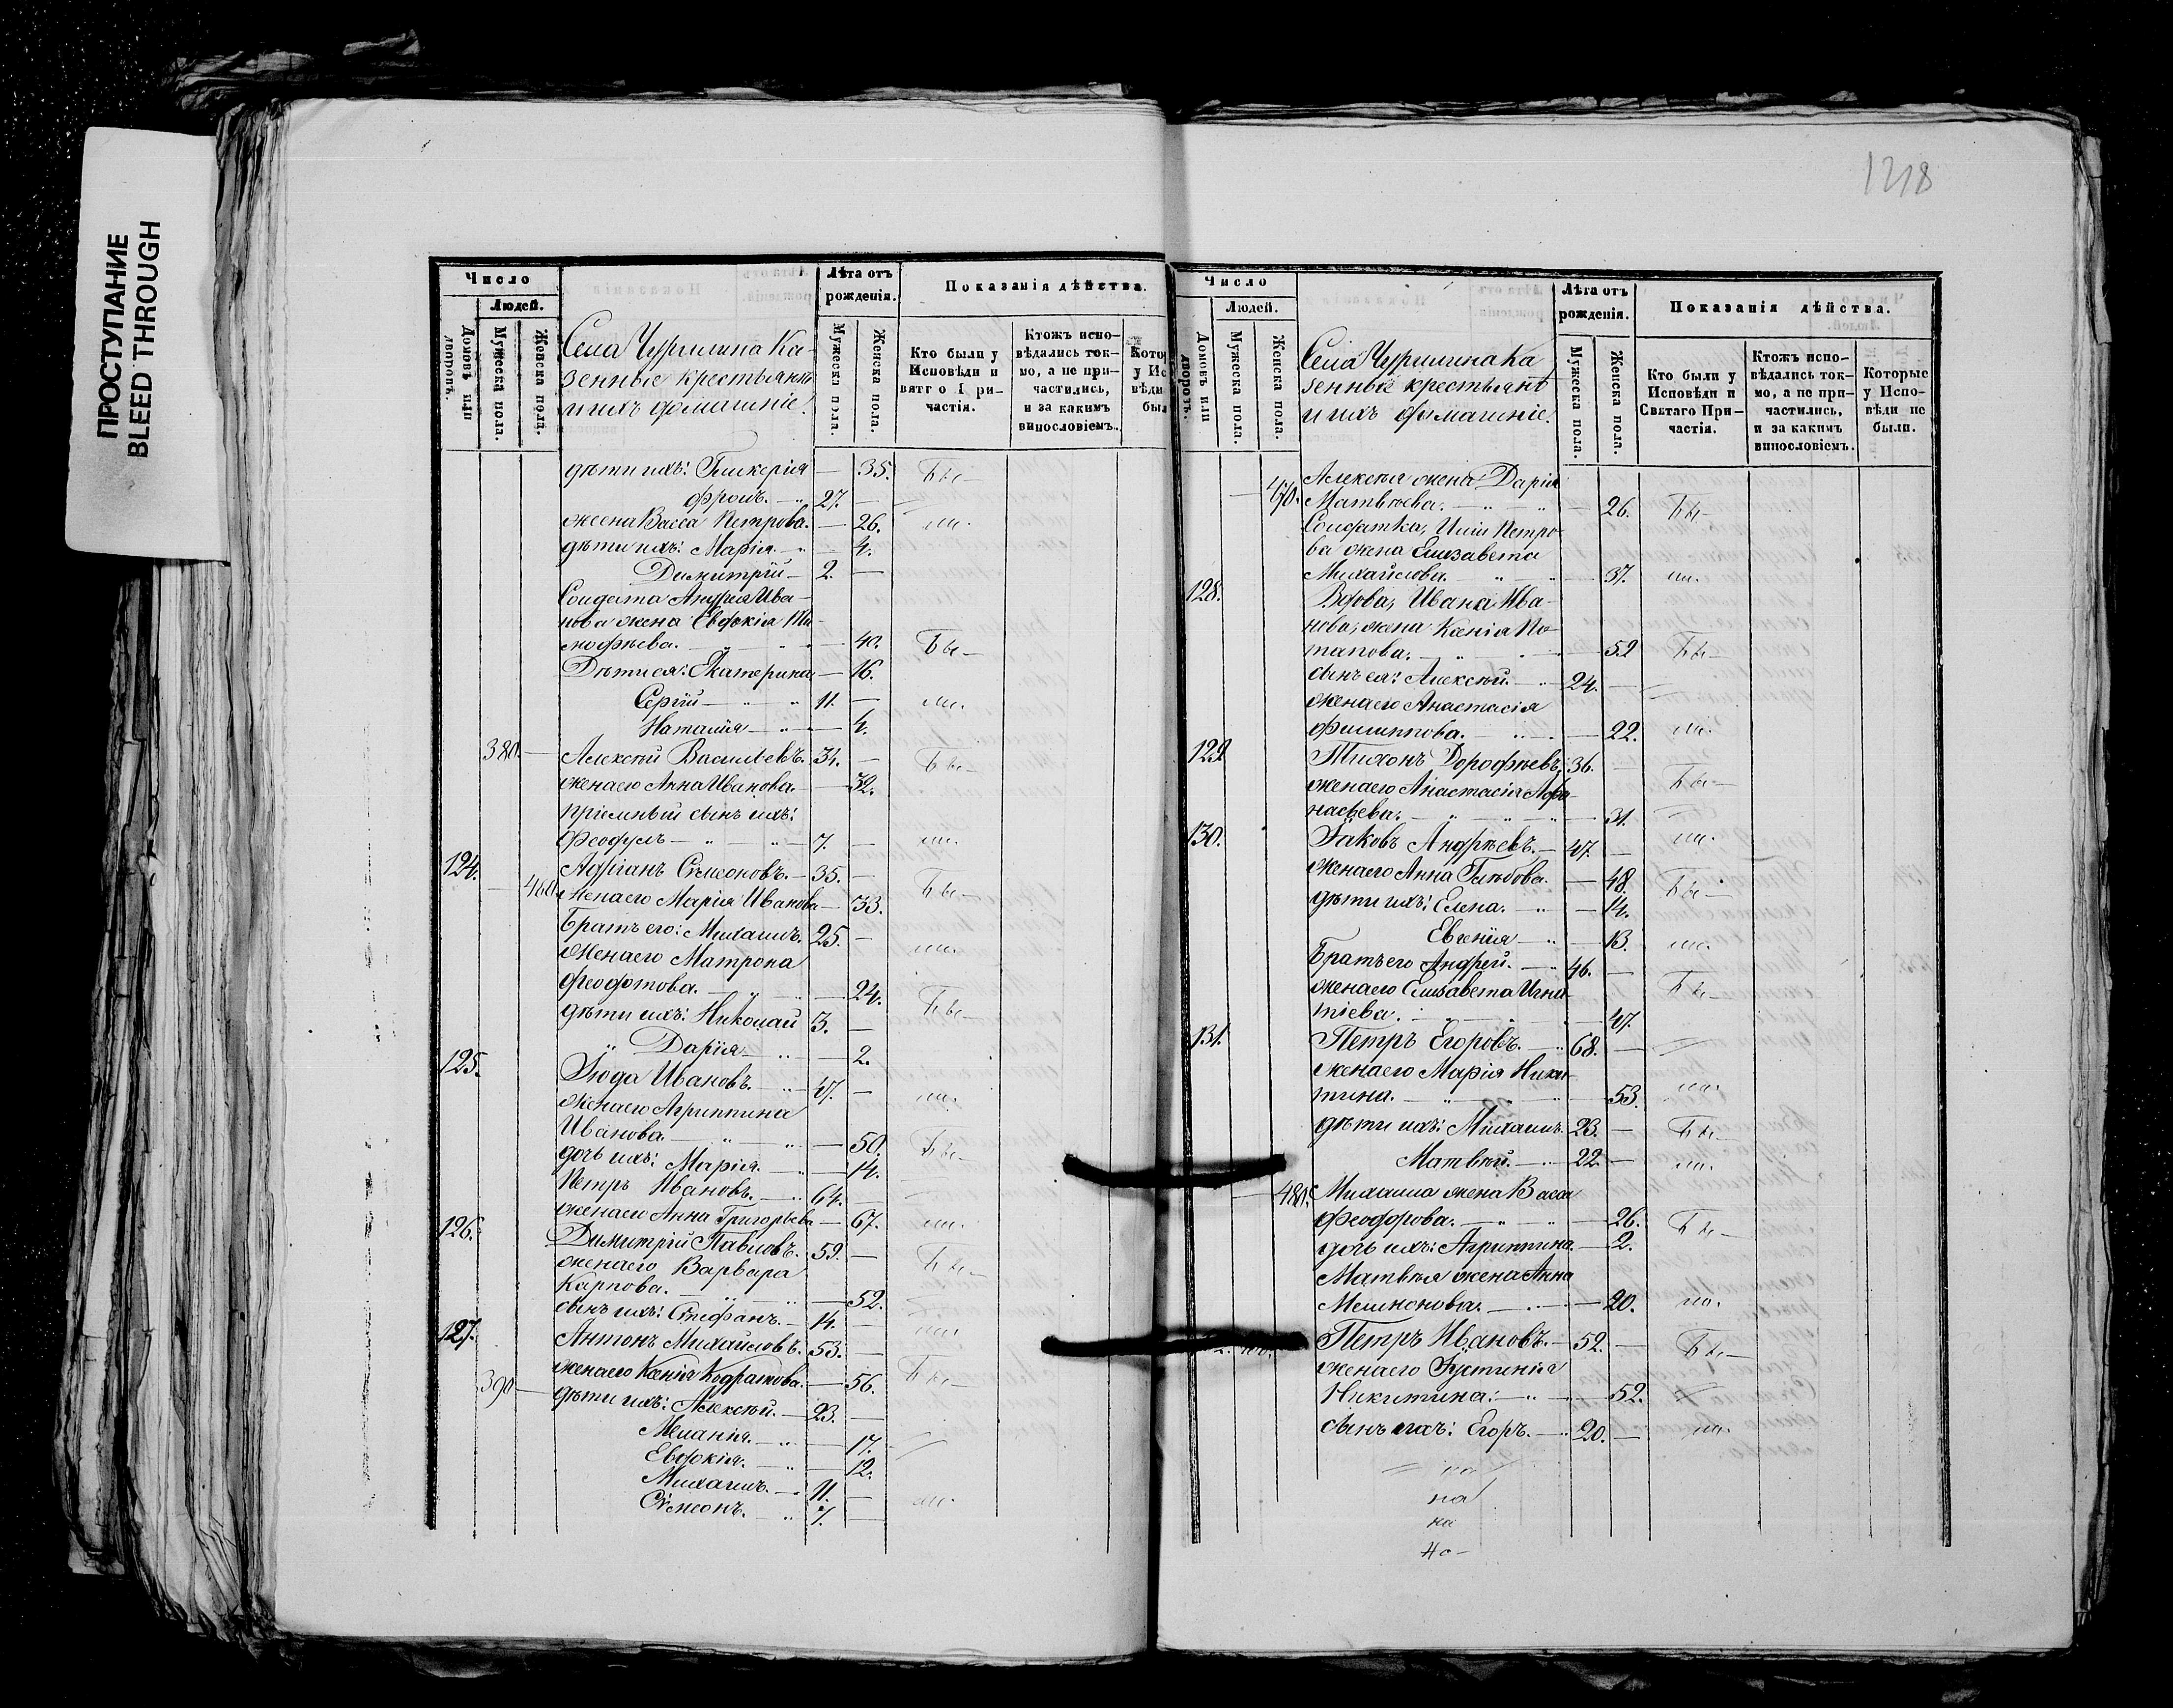 ПРОСТУПАНИЕ
BLEED THROUGH
Число
Людей.
Домовъ или дворовъ.
Мужеска пола.
Женска пола.
Села Чурилина Ка-
зенные крестьяне
и ихъ домашніе.
Лѣта отъ рожденія.
Мужеска пола.
Женска пола.
Показанія дѣйства.
Кто были у
Исповѣди и
частія.
Ктожъ испо-
вѣдались ток-
мо, а не при-
частились,
и за какимъ
винословіемъ.
дѣти ихъ: Гликерія — 35. Бы-
Фролъ. — 27. —
жена Васса Петрова. — 26. ли.
дѣти ихъ: Марія. — 4.
Димитрій — 2. —
Солдата Андрея Ива-
нова жена Евдокія Ти-
мофѣева. — 40. Бы-
Дѣти ея: Екатерина — 16.
Сергій — 11. — ли.
Наталія — 4.
380. Алексѣй Васильевъ. 34. — Бы-
жена его Анна Иванова. — 32.
пріемный сынъ ихъ:
Феодулъ — 7. — ли.
124. Адріанъ Сѵмеоновъ. — 35. —
460. жена его Марія Иванова — 33. Бы-
Братъ его: Михаилъ. 25. — ли.
жена его Матрона
Феодотова. — 24. Бы-
дѣти ихъ: Николай 3. —
Дарія — 2.
125. Іюда Ивановъ. — 47. — ли.
жена его Агриппина
Иванова. — 50. Бы-
дочь ихъ: Марія. — 14.
Петръ Ивановъ. — 64.
жена его Анна Григорьева — 67. ли.
126. Димитрій Павловъ. 59. — Бы-
жена его Варвара
Карпова. — 52.
сынъ ихъ: Стефанъ. — 14. — ли.
127. Антонъ Михайловъ. 53. —
жена его Ксенія Кодратова. — 56. Бы-
390 — дѣти ихъ: Алексѣй. — 23. —
Меланія. — 17.
Евдокія. — 12.
Михаилъ. — 11. — ли.
Сѵмеонъ. 7. —
1218
Число
Людей.
Домовъ или дворовъ.
Мужеска пола.
Женска пола.
Села Чурилина Ка
зенные крестьяне
и ихъ домашніе.
Лѣта отъ рожденія.
Мужеска пола.
Женска пола.
Показанія дѣйства.
Кто были у
Исповѣди и
Святаго При-
частія.
Ктожъ испо-
вѣдались ток-
мо, а не при-
частились,
и за какимъ
винословіемъ.
Которые
у Испо-
вѣди не
были.
Алексѣя жена Дарія
470. Матвѣева. — 26. Бы-
Солдатка, Иліи Петро-
ва жена Елизавета
Михайлова. — 37. ли.
128. Вдова, Ивана Ива-
нова, жена Ксенія По-
тапова. — 52 Бы-
сынъ ея: Алексѣй. — 24. —
жена его Анастасія
Филиппова. — 22. ли.
129. Тихонъ Дорофѣевъ. 36. —
жена его Анастасія Афа- Бы-
насьева. — 31.
130. Іаковъ Андрѣевъ. — 47. — ли.
жена его Анна Глѣбова. — 48. Бы-
дѣти ихъ: Елена. — 14.
Евгенія — 13. ли.
Братъ его Андрей. — 46. —
жена его Елизавета Игна- Бы-
тіева. — 47.
131. Петръ Егоровъ. — 68. —
жена его Марія Ники-
тина. — 53. ли.
дѣти ихъ: Михаилъ. 23. — Бы-
Матвѣй. — 22. — ли.
480. Михаила жена Васса
Феодорова. — 26. Бы-
дочь ихъ: Агриппина. — 2.
Матвѣя жена Анна
Мемнонова. — 20. ли.
Петръ Ивановъ. — 52. — Бы-
жена его Іустинія
Никитина: — 52.
сынъ ихъ: Егоръ. — 20. — ли.
на
на
но-